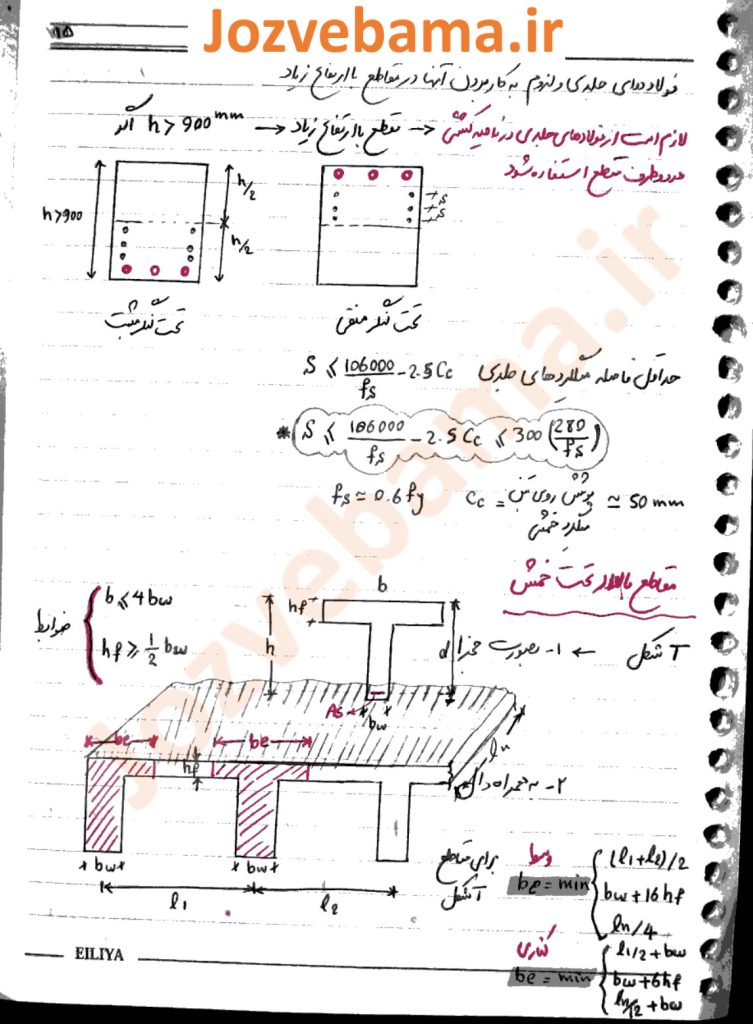 Jozvebama.ir
۱۵
فولادهای جلدی و لزوم به کار بردن آنها در مقاطع با ارتفاع زیاد
اگر h > 900 mm → مقطع با ارتفاع زیاد → لازم است از فولادهای جلدی در ناحیه کششی
در دو طرف مقطع استفاده شود
h>900
h/2
h/2
s
s
تحت لنگر مثبت
تحت لنگر منفی
حداقل فاصله میلگردهای جلدی S ⩽ 106000/fs - 2.5Cc
* S ⩽ 106000/fs - 2.5 Cc ⩽ 300 (280/fs)
fs ≃ 0.6fy Cc = پوشش روی بتن میلگرد خمشی ≃ 50 mm
مقاطع بالدار تحت خمش
ضوابط
b ⩽ 4bw
hf ⩾ 1/2 bw
b
hf
h
d
As
bw
T شکل ← ۱- بصورت مجزا
۲- به همراه دال
be
be
hf
ln
bw
bw
l1
l2
برای مقاطع
T شکل
وسط
be = min
(l1+l2)/2
bw + 16hf
ln/4
کناری
be = min
l1/2 + bw
bw+6hf
ln/12 + bw
EILIYA
Jozvebama.ir